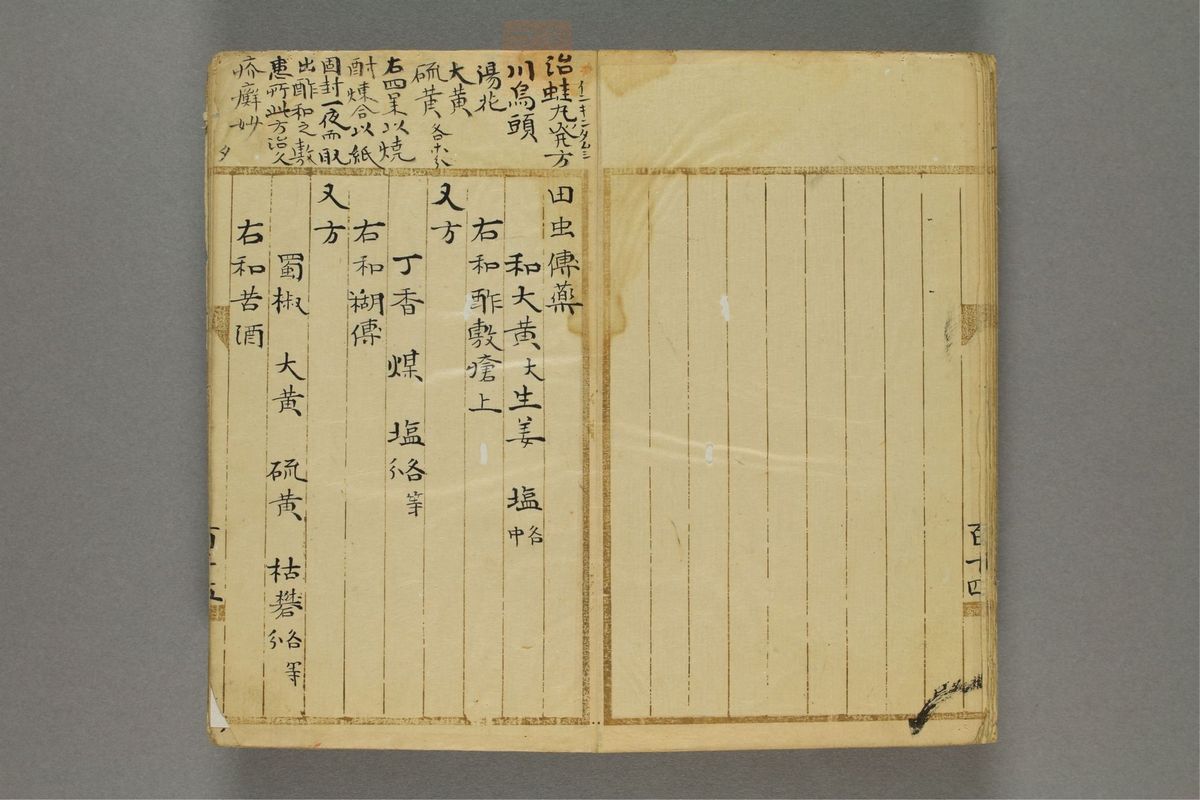 百十四
治蛙九発方
川烏頭
湯花
大黄
硫黄 各等分
右四業以焼
酎煉合以紙
固封一夜而取
出酢和之敷
患所此方治久
疥癬妙
田虫傅薬
和大黄大生姜 塩各中
右和酢敷瘡上
又方
丁香 煤 塩各等分
右和糊傅
又方
蜀椒 大黄 硫黄 枯礬各等分
右和苦酒
百十五